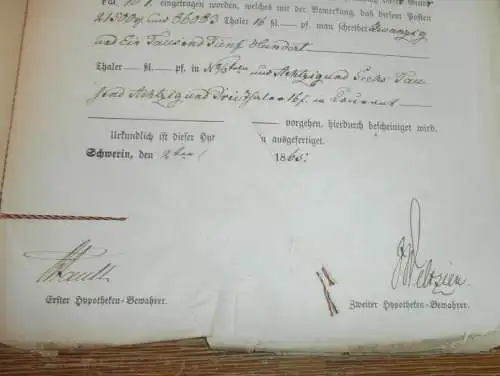 Fol. 10 1. eingetragen worden, welches mit der Bemerkung, daß diesem Posten
21500 und 86083 Thaler 16 ßl. — pf. man schreibe Zwanzig
und Ein Tausend Fünf Hundert
Thaler — ßl. — pf. in und Achtzig und Sechs Tau-
send Achtzig und Drei Thaler 16 ßl. in Courant
vorgehen, hierdurch bescheiniget wird.
Urkundlich ist dieser Hyp n ausgefertiget.
Schwerin, den 1865.
Erster Hypotheken-Bewahrer. Zweiter Hypotheken-Bewahrer.